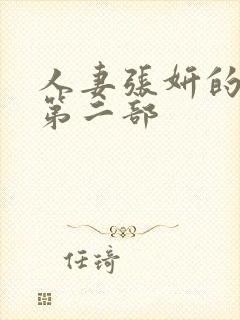 人妻張妍的
第二部
任琦